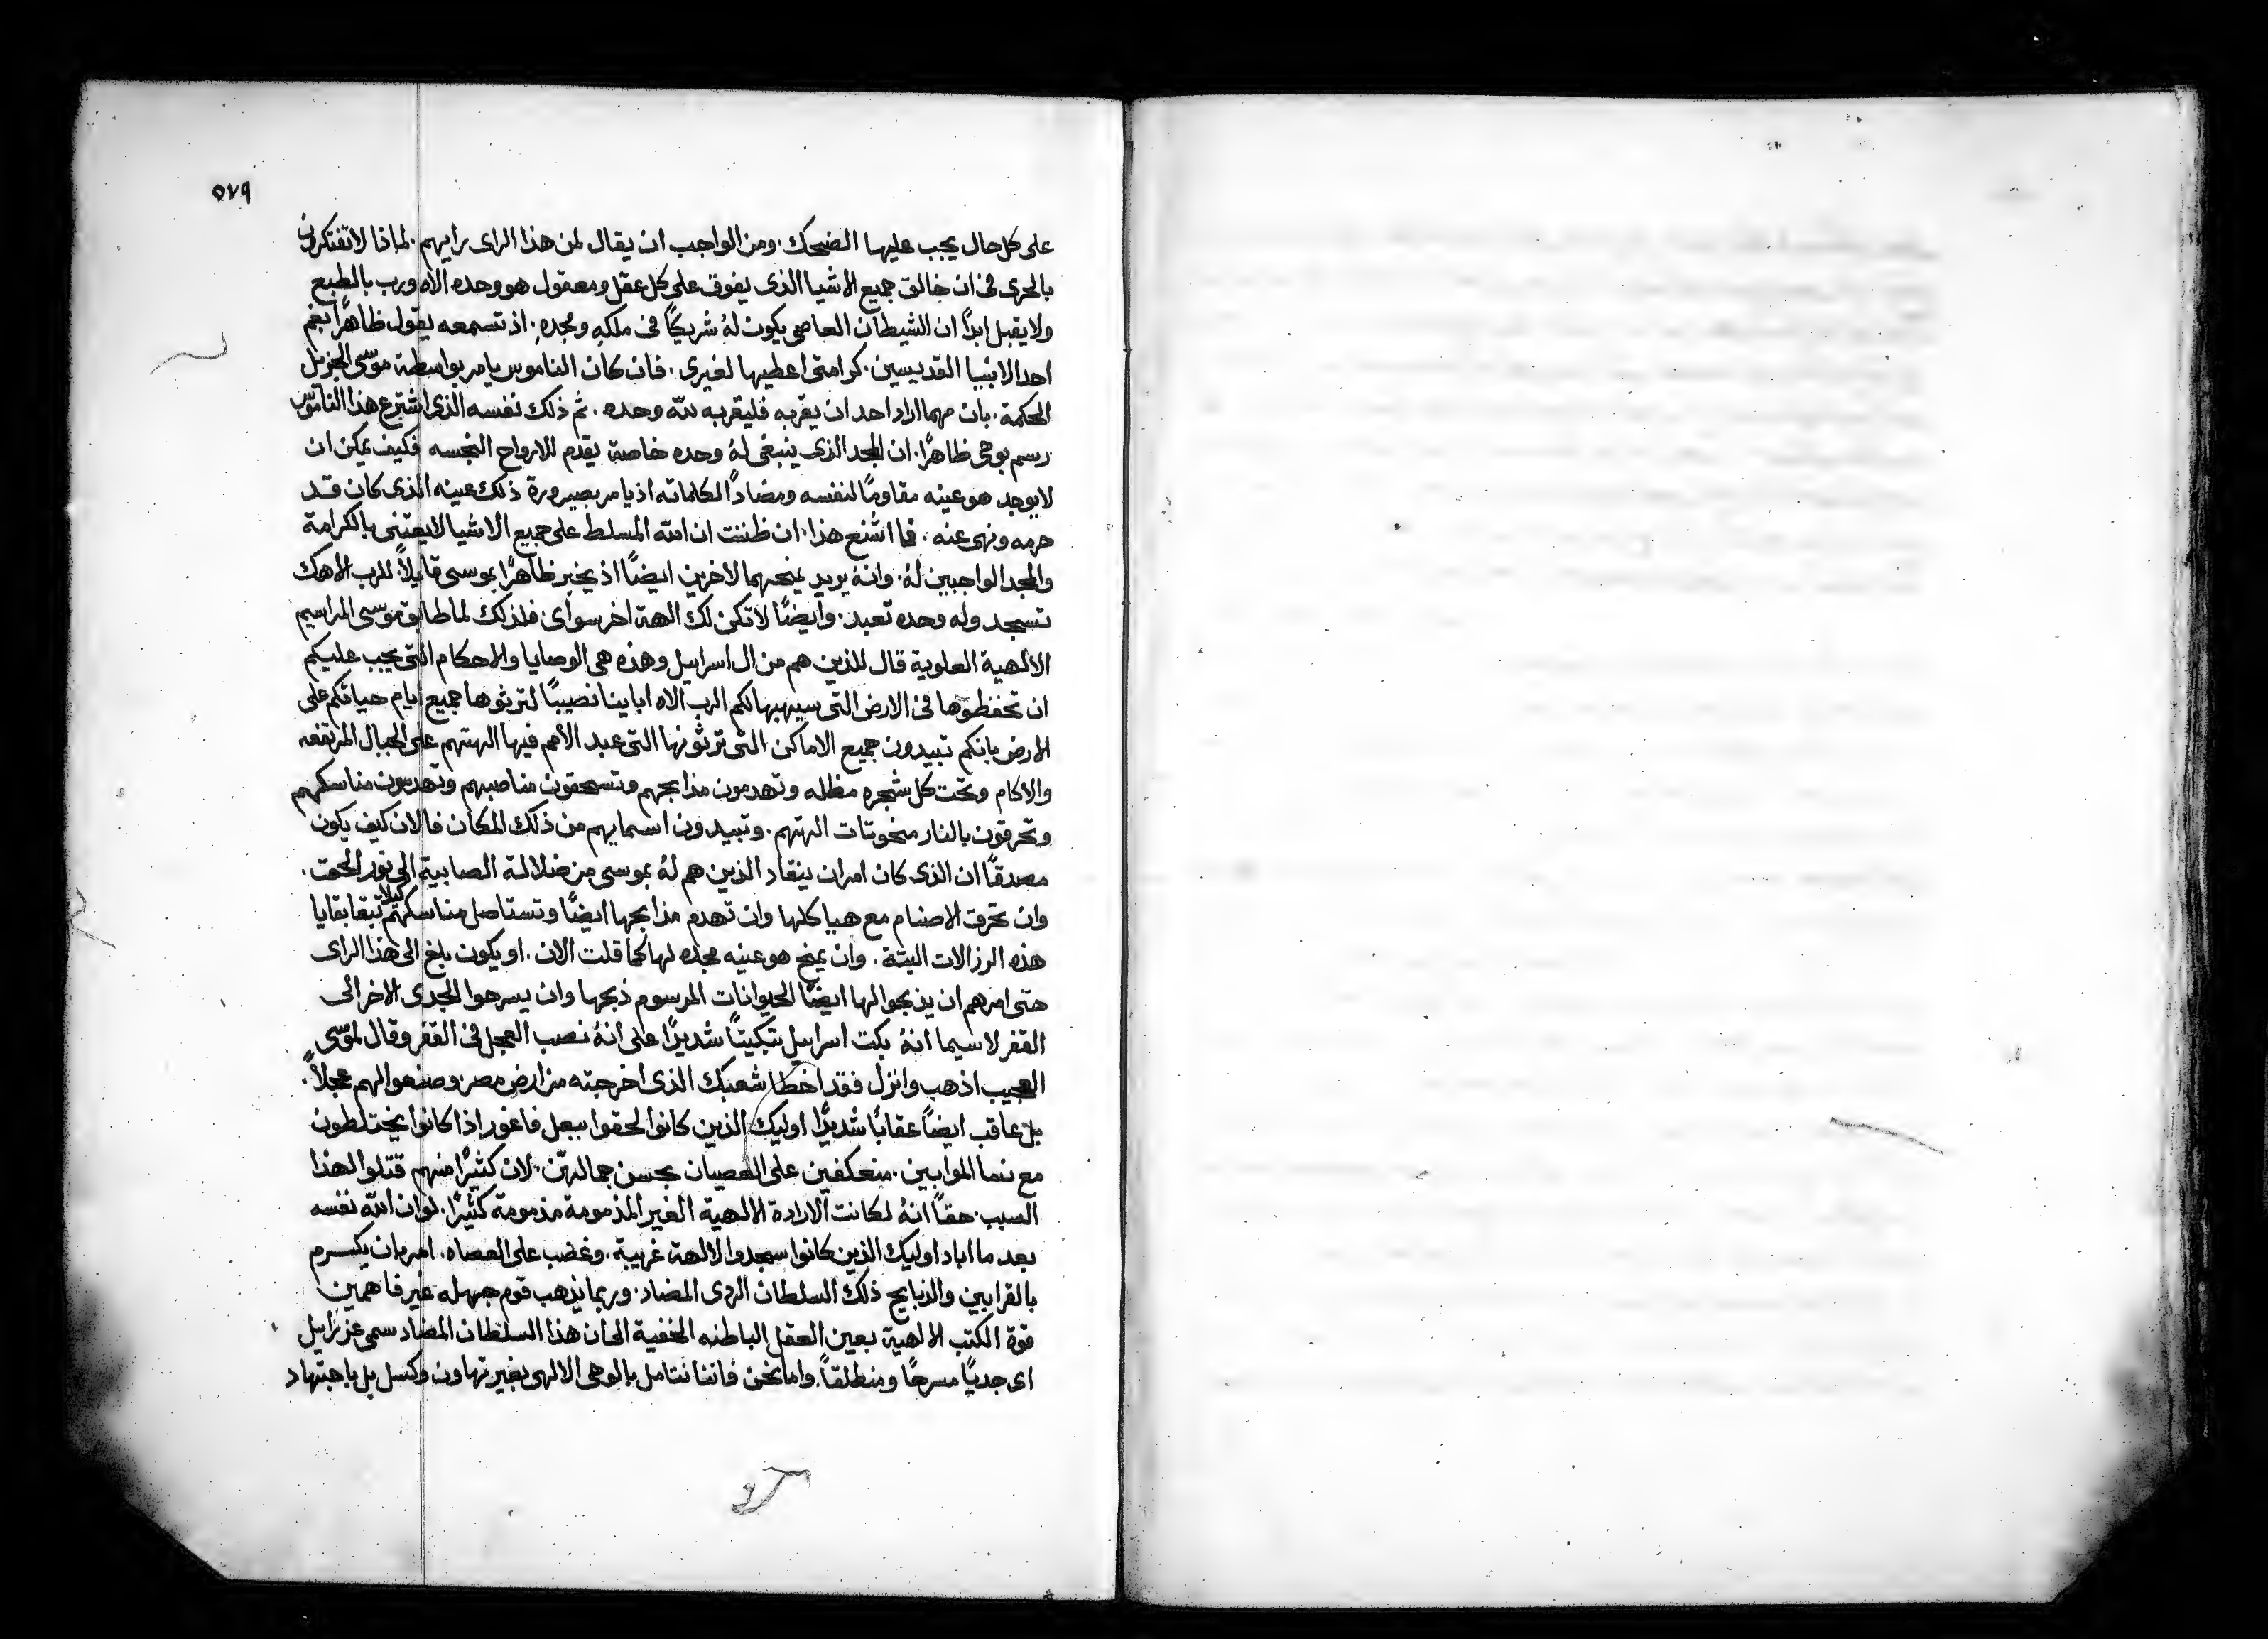 ٥٧٩
على كل حال يجب عليها الضحك. ومن الواجب ان يقال لمن هذا الراى رايهم. لماذا لا تفتكرون
بالحرى فى ان خالق جميع الاشيا الذى يفوق على كل عقل ومعقول هو وحده الاه ورب بالطبع
ولا يقبل ابدًا ان الشيطان العاصى يكون لهُ شريكًا فى ملكهِ ومجدهِ. اذ تسمعه يقول ظاهرًا بفم
احد الانبيا القديسين. كرامتى اعطيها لغيرى. فان كان الناموس يامر بواسطة موسى الجزيل
الحكمة. بان مهما اراد احد ان يقربه فليقربه لله وحده. ثم ذلك نفسه الذى اشترع هذا الناموس
رسم بوحى ظاهرًا. ان المجد الذى ينبغى لهُ وحده خاصة يقدم للارواح النجسه فكيف يمكن ان
لا يوجد هو عينه مقاومًا لنفسه ومضادًا لكلماته اذ يامر بصيرورة ذلك عينه الذى كان قد
حرمه ونهى عنه. فما اشنع هذا. ان ظننت ان الله المسلط على جميع الاشيا لا يعتنى بالكرامة
والمجد الواجبين لهُ. وانهُ يريد يمنحهما لاخرين ايضًا اذ يخبر ظاهرًا بموسى قايلاً. للرب الاهك
تسجد وله وحده تعبد. وايضًا لا تكن لك الهة اخر سواى. فلذلك لما طابق موسى المراسيم
الالهية العلوية قال للذين هم من ال اسراييل وهذه هى الوصايا والاحكام التى يجب عليكم
ان تحفظوها فى الارض التى سيهبها لكم الرب الاه اباينا نصيبًا لترثوها جميع ايام حياتكم على
الارض بانكم تبيدون جميع الاماكن التى ترثونها التى عبد الأمم فيها الهتهم على الجبال المرتفعه
والاكام وتحت كل شجره مظله وتهدمون مذابحهم وتسحقون مناصبهم وتهدمون مناسكهم
وتحرقون بالنار منحوتات الهتهم. وتبيدون اسمايهم من ذلك المكان فالان كيف يكون
مصدقًا ان الذى كان امر ان ينقاد الذين هم لهُ بموسى من ضلالة الصابية الى نور الحق.
وان تحرق الاصنام مع هياكلها وان تهدم مذابحها ايضًا وتستاصل مناسكهم كيلا تبقا بقايا
هذه الرزالات البتة. وان يمنح هو عينه مجده لها كما قلت الان. او يكون بلغ الى هذا الراى
حتى امرهم ان يذبحوا لها ايضًا الحيوانات المرسوم ذبحها وان يسرحوا الجدى الاخر الى
القفر لا سيما انهُ بكت اسراييل تبكيتًا شديدًا على انهُ نصب العجل فى القفر وقال لموسى
العجيب اذهب وانزل فقد اخطا شعبك الذى اخرجته من ارض مصر وصنعوا لهم عجلاً.
بل عاقب ايضًا عقابًا شديدًا اوليك الذين كانوا لحقوا ببعل فاغور اذا كانوا يختلطون
مع نسا الموابين. منعكفين على العصيان بحسن جمالهنّ. لان كثيرًا منهم قتلوا لهذا
السبب. حقًا انهُ لكانت الارادة الالهية الغير المذمومة مذمومة كثيرًا. لو ان الله نفسه
بعد ما اباد اوليك الذين كانوا سجدوا لألهة غريبة. وغضب على العصاه. امر بان يكرم
بالقرابين والذبايح ذلك السلطان الردى المضاد. وربما يذهب قوم جهله غير فاهمين
قوة الكتب الالهية بعين العقل الباطنه الخفية الى ان هذا السلطان المضاد سمى عزراييل
اى جديًا مسرحًا ومنطلقًا. واما نحن فاننا نتامل بالوحى الالهى بغير تهاون وكسل بل باجتهاد